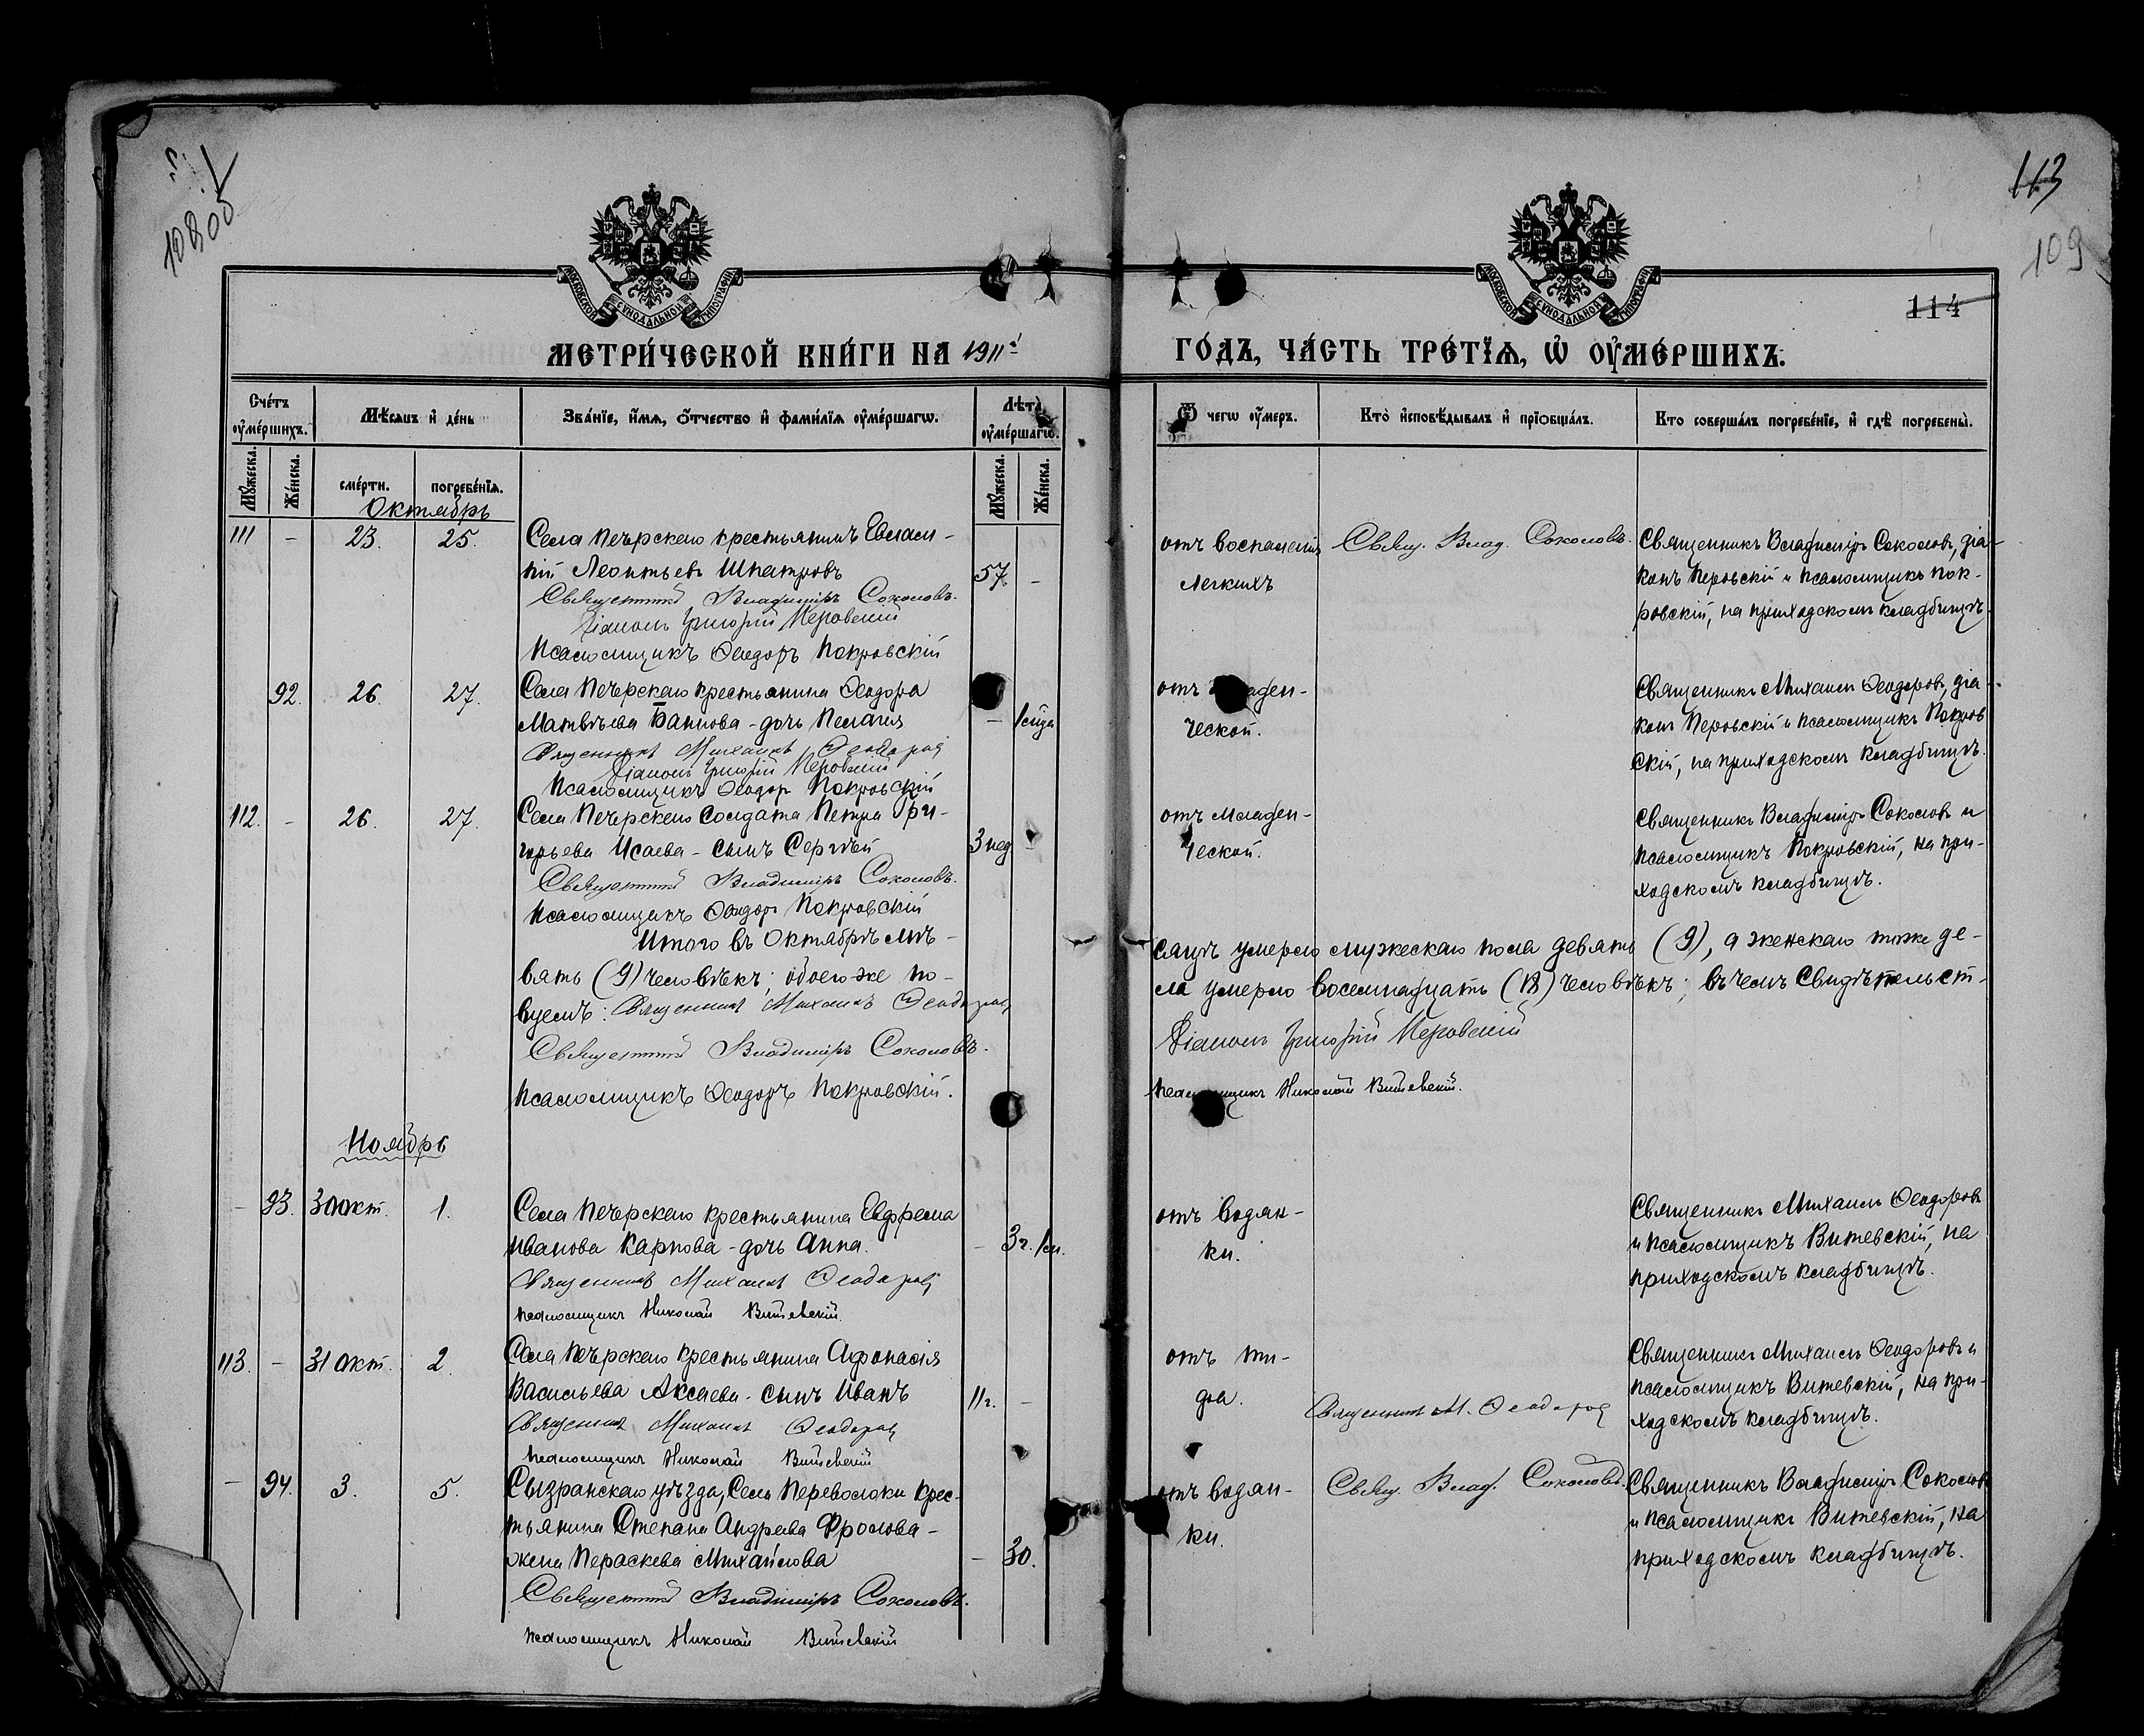 10805
113
109
114
МОСКОВСКОЙ СѴНОДАЛЬНОЙ ТИПОГРАФІИ
МОСКОВСКОЙ СѴНОДАЛЬНОЙ ТИПОГРАФІИ
МЕТРИ́ЧЕСКОЙ КНИ́ГИ НА 1911й
ГО́ДЪ, ЧА́СТЬ ТРЕ́ТЇѦ, Ѡ҆ ОУ҆МЕ́РШИХЪ.
Сче́тъ оу҆ме́ршихъ.
Мѣ́сѧцъ и҆ де́нь
Зва́нїе, и҆́мѧ, ѻ҆́тчество и҆ фами́лїѧ оу҆ме́ршагѡ.
Лѣ́та оу҆ме́ршагѡ.
Ѿ чегѡ̀ оу҆́меръ.
Кто̀ и҆сповѣ́дывалъ и҆ прїѡбща́лъ.
Кто соверша́лъ погребе́нїе, и҆ гдѣ̀ погребены̀.
Мꙋ́жеска.
Же́нска.
сме́рти.
погребе́нїѧ.
Мꙋ́жеска.
Же́нска.
Октябрь
111 - 23. 25.
Села Печерскаго крестьянинъ Евлам-
пій Леонтьевъ Шпатровъ
57. -
Священникъ Владиміръ Соколовъ.
Діаконъ Григорій Перовскій
Псаломщикъ Ѳеодоръ Покровскій
отъ воспаленія
легкихъ
Свящ. Влад. Соколовъ.
Священникъ Владиміръ Соколовъ, діа-
конъ Перовскій и псаломщикъ Пок-
ровскій, на приходскомъ кладбищѣ.
92. 26. 27.
Села Печерскаго крестьянина Ѳеодора
Матвѣева Банкова - дочь Пелагія
-
Священникъ Михаилъ Ѳеодоровъ
Діаконъ Григорій Перовскій
Псаломщикъ Ѳеодоръ Покровскій
отъ
ческой.
Священникъ Михаилъ Ѳеодоровъ, діа-
конъ Перовскій и псаломщикъ Покров
скій, на приходскомъ кладбищѣ.
112. - 26. 27.
Села Печерскаго солдата Петра Гри-
горьева Исаева - сынъ Сергѣй
3 нед -
Священникъ Владиміръ Соколовъ.
Псаломщикъ Ѳеодоръ Покровскій
отъ младен-
ческой.
Священникъ Владиміръ Соколовъ и
псаломщикъ Покровскій, на при-
ходскомъ кладбищѣ.
Итого въ Октябрѣ мѣ-
сяцѣ умерло мужескаго пола девять (9), а женскаго тоже де-
вять (9) человѣкъ; обоего же по-
ла умерло восемнадцать (18) человѣкъ; въ чемъ свидѣтельст-
вуемъ: Священникъ Михаилъ Ѳеодоровъ
Священникъ Владиміръ Соколовъ.
Діаконъ Григорій Перовскій
Псаломщикъ Ѳеодоръ Покровскій.
Псаломщикъ Николай Витевскій.
Ноябрь
- 93. 30 окт. 1.
Села Печерскаго крестьянина Евфрема
Иванова Карпова - дочь Анна.
- 3 г. 1 м.
Священникъ Михаилъ Ѳеодоровъ
Псаломщикъ Николай Витевскій.
отъ водян-
ки.
Священникъ Михаилъ Ѳеодоровъ
и псаломщикъ Витевскій, на
приходскомъ кладбищѣ.
113. - 31 окт. 2.
Села Печерскаго крестьянина Афонасія
Васильева Аксаева - сынъ Иванъ
11 г. -
Священникъ Михаилъ Ѳеодоровъ
Псаломщикъ Николай Витевскій
отъ ти-
фа.
Священникъ М. Ѳеодоровъ
Священникъ Михаилъ Ѳеодоровъ и
псаломщикъ Витевскій, на при-
ходскомъ кладбищѣ.
- 94. 3. 5.
Сызранскаго уѣзда, Села Переволоки крес-
тьянина Степана Андреева Фролова -
жена Пераскева Михайлова
- 30.
Священникъ Владиміръ Соколовъ.
Псаломщикъ Николай Витевскій
отъ водян-
ки.
Свящ. Влад. Соколовъ.
Священникъ Владиміръ Соколовъ
и псаломщикъ Витевскій, на
приходскомъ кладбищѣ.